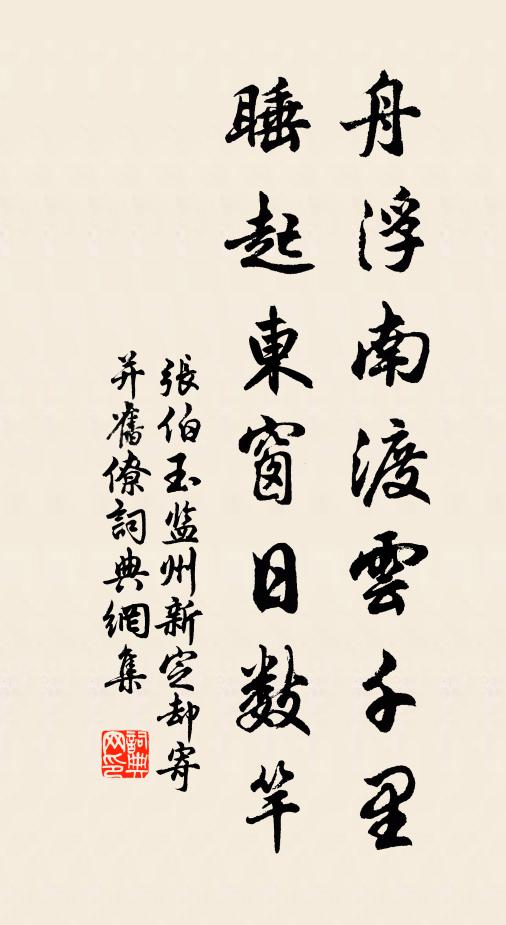 舟浮南渡雲千里
睡起東窗日數竿
張伯玉监州新定却寄
并舊僚詞典網集
詞典网印